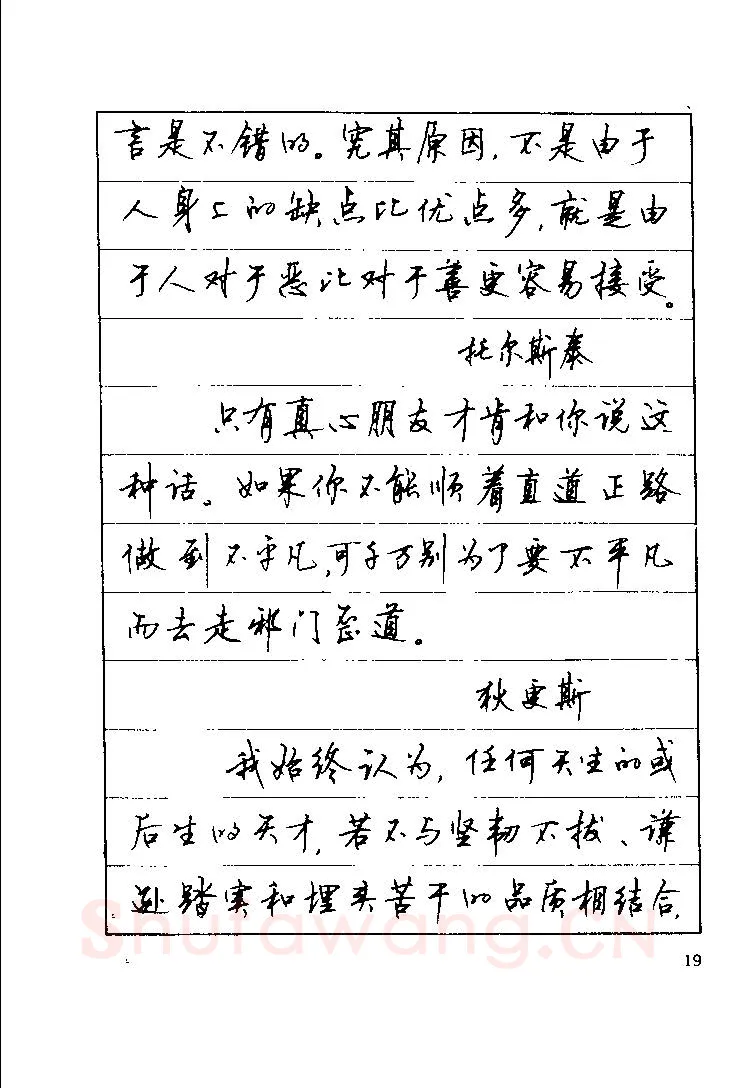 言是不错的。究其原因，不是由于
人身上的缺点比优点多，就是由
于人对于恶比对于善更容易接受。
托尔斯泰
只有真心朋友才肯和你说这
种话。如果你不能顺着直道正路
做到不平凡，可千万别为了要不平凡
而去走邪门歪道。
狄更斯
我始终认为，任何天生的或
后生的天才，若不与坚韧不拔、谦
逊踏实和埋头苦干的品质相结合，
Shufawang.CN
19